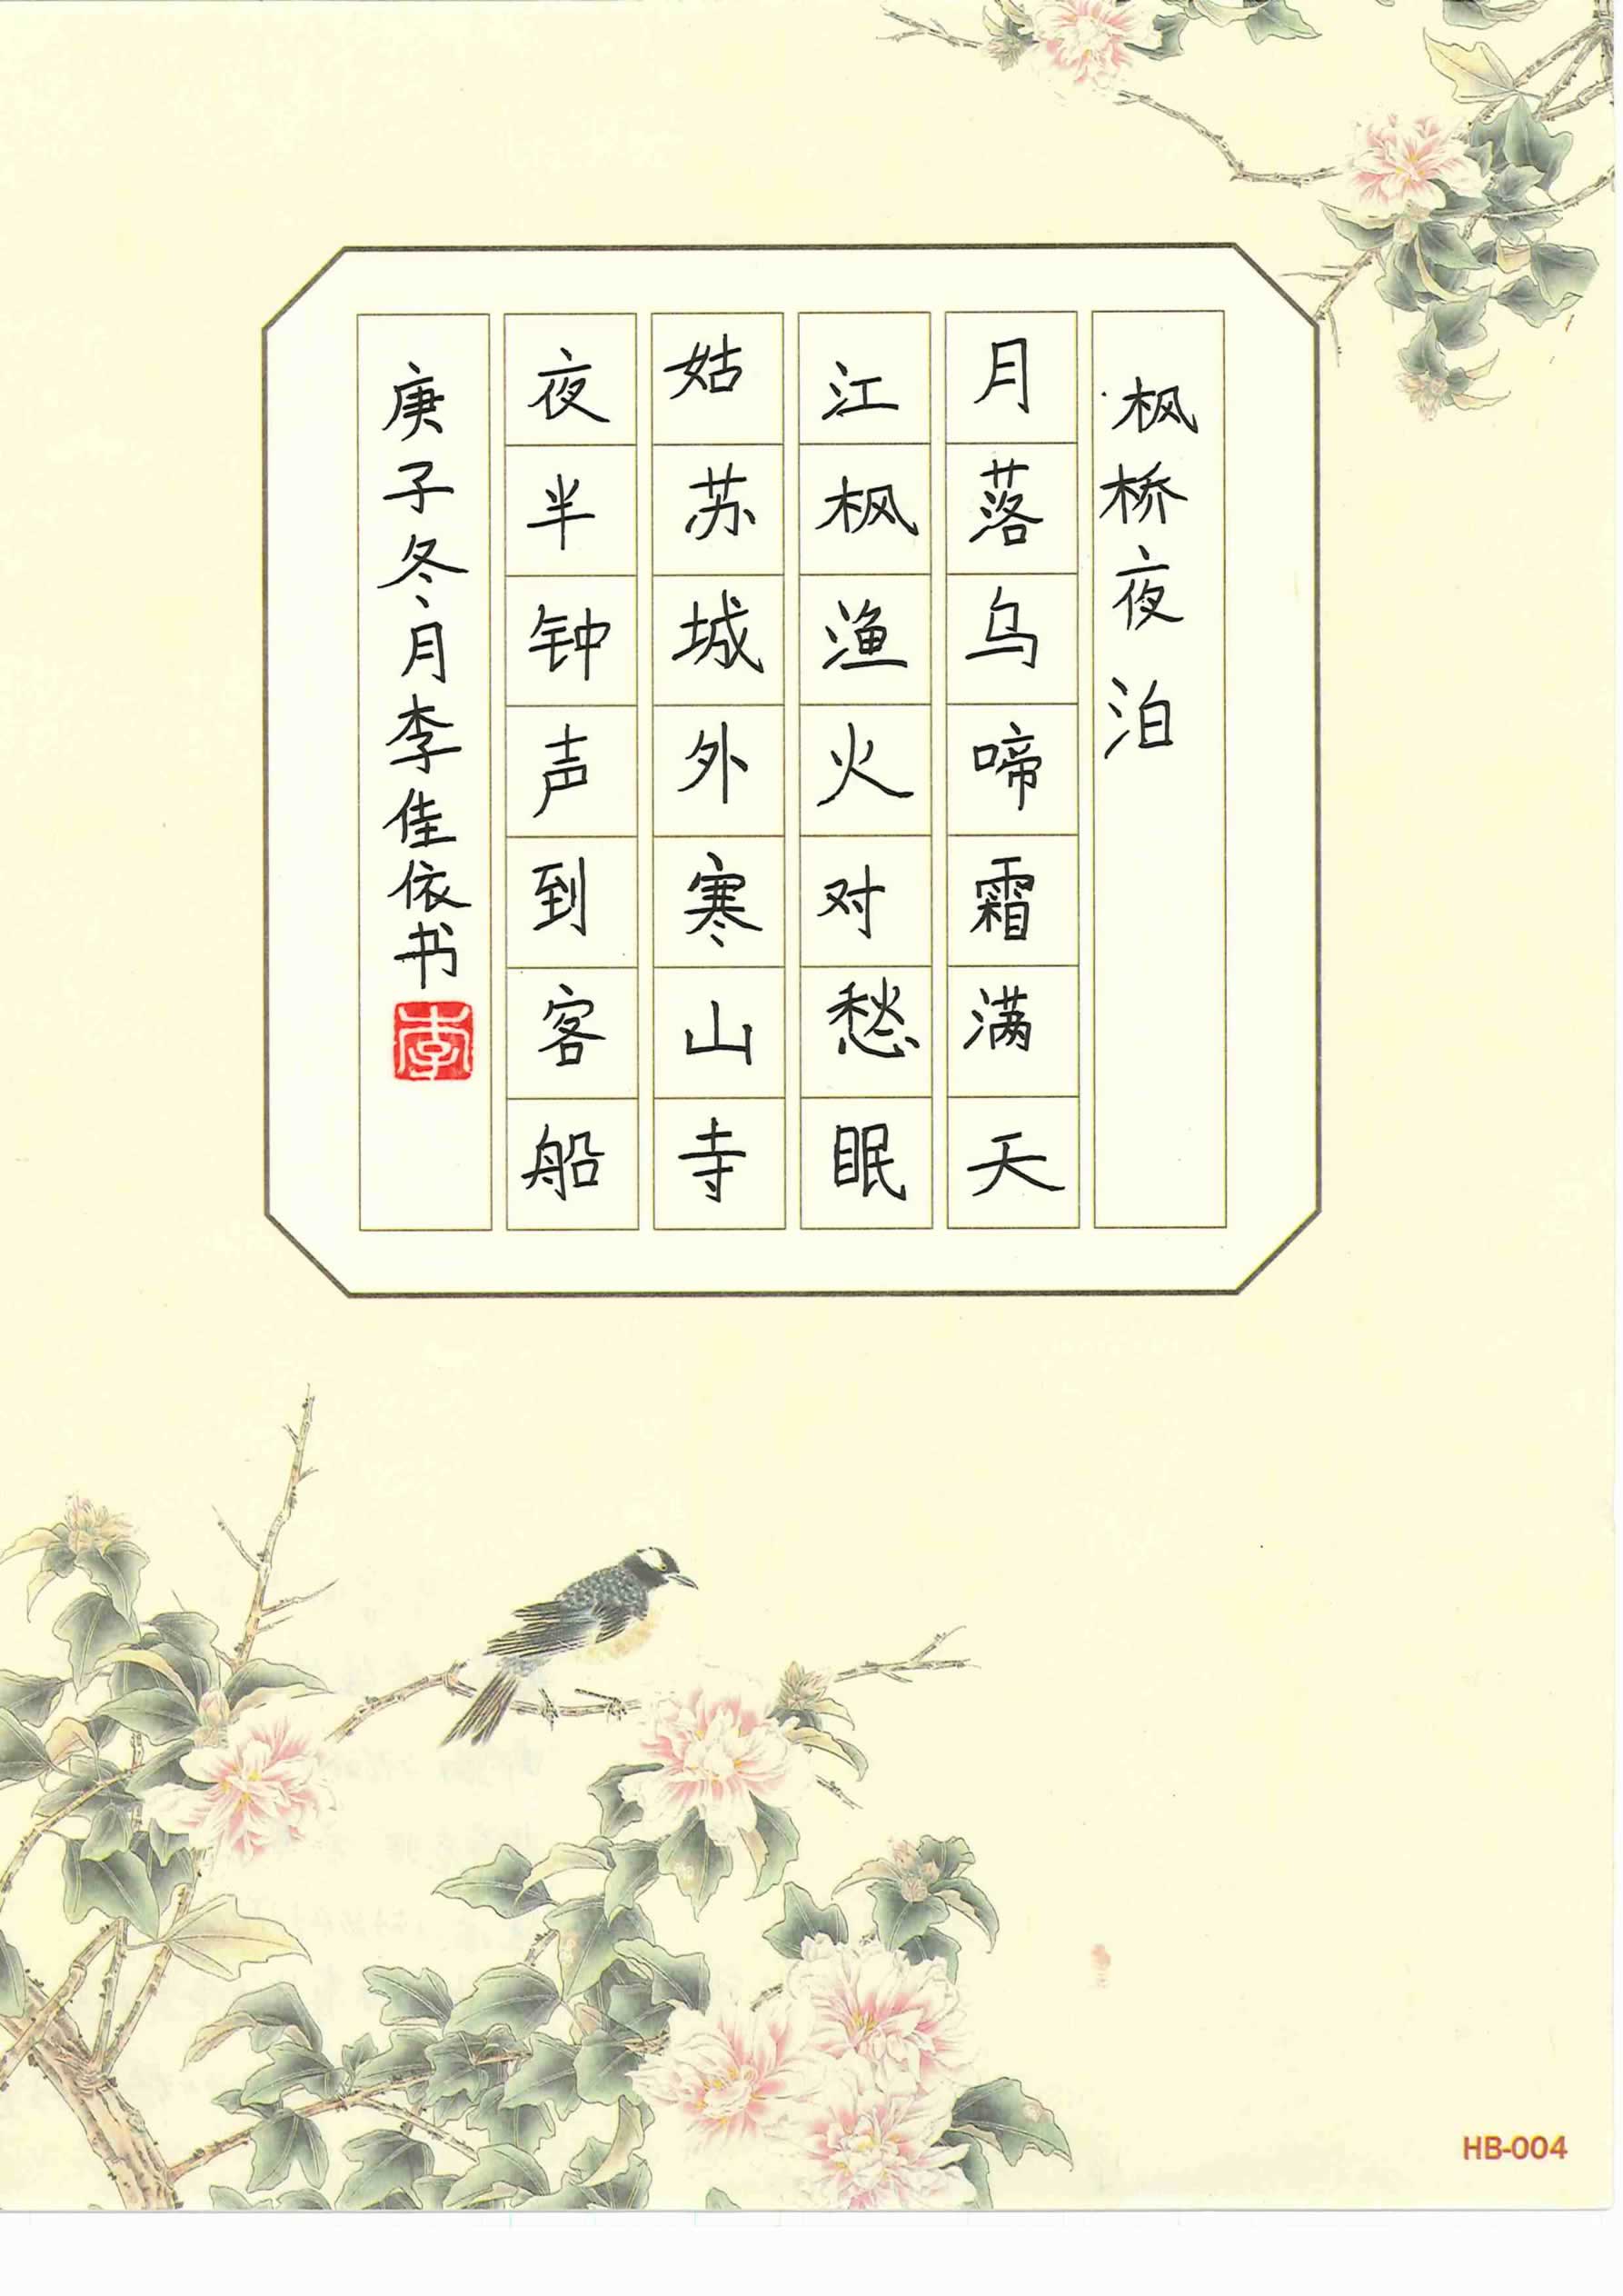 枫桥夜泊
月落乌啼霜满天
江枫渔火对愁眠
姑苏城外寒山寺
夜半钟声到客船
庚子冬月李佳依书
李
HB-004